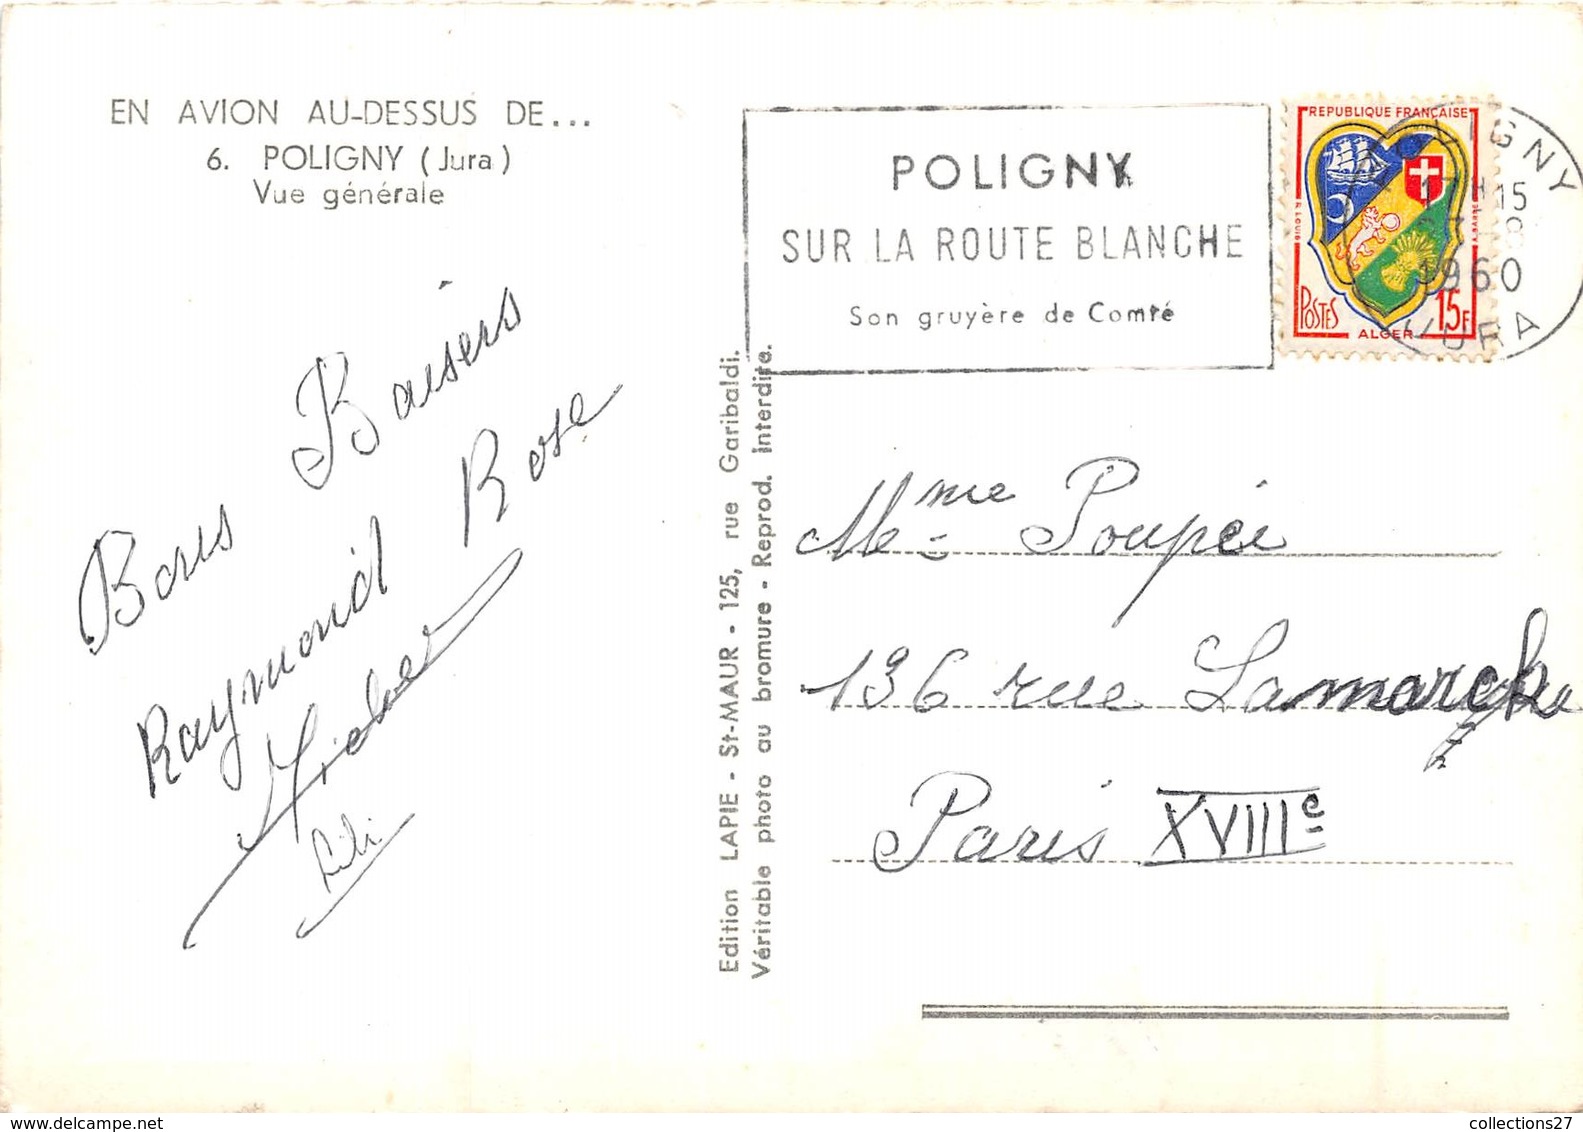 EN AVION AU-DESSUS DE...
6. POLIGNY (Jura)
Vue générale
Bons Baisers
Raymond Rose
Michel
Lili
Edition LAPIE - St-MAUR - 125, rue Garibaldi.
Véritable photo au bromure - Reprod. interdite.
POLIGNY
SUR LA ROUTE BLANCHE
Son gruyère de Comté
REPUBLIQUE FRANÇAISE
POSTES
15F
ALGER
POLIGNY
17H15
1960
JURA
Mme Poupée
136 rue Lamarck
Paris XVIIIe
collections27